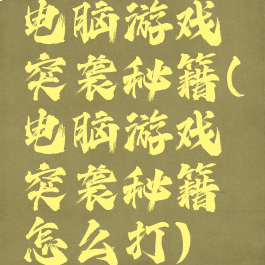 电脑游戏
突袭秘籍(
电脑游戏
突袭秘籍
怎么打)